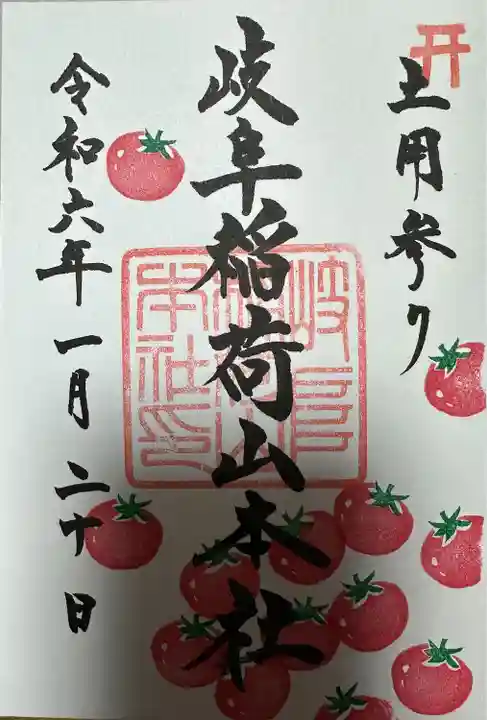 土用参り
岐阜稲荷山本社
令和六年一月二十日
岐阜
稲荷山
本社印